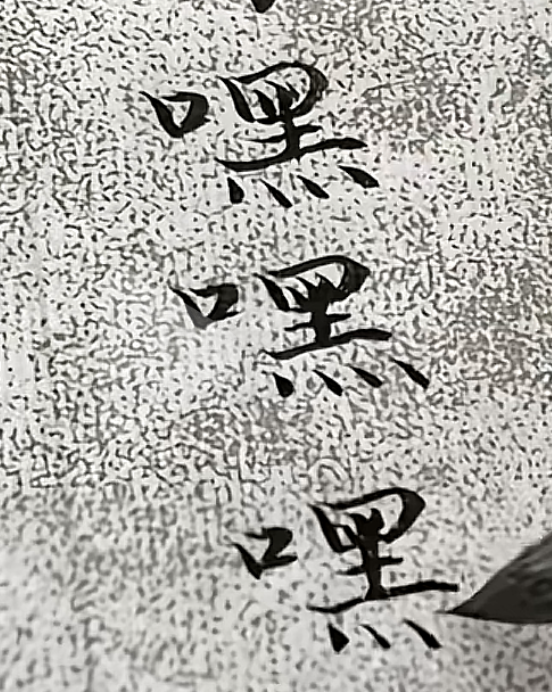 嘿
嘿
嘿